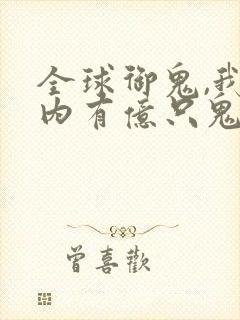 全球御鬼,我
内有億只鬼
曾喜歡